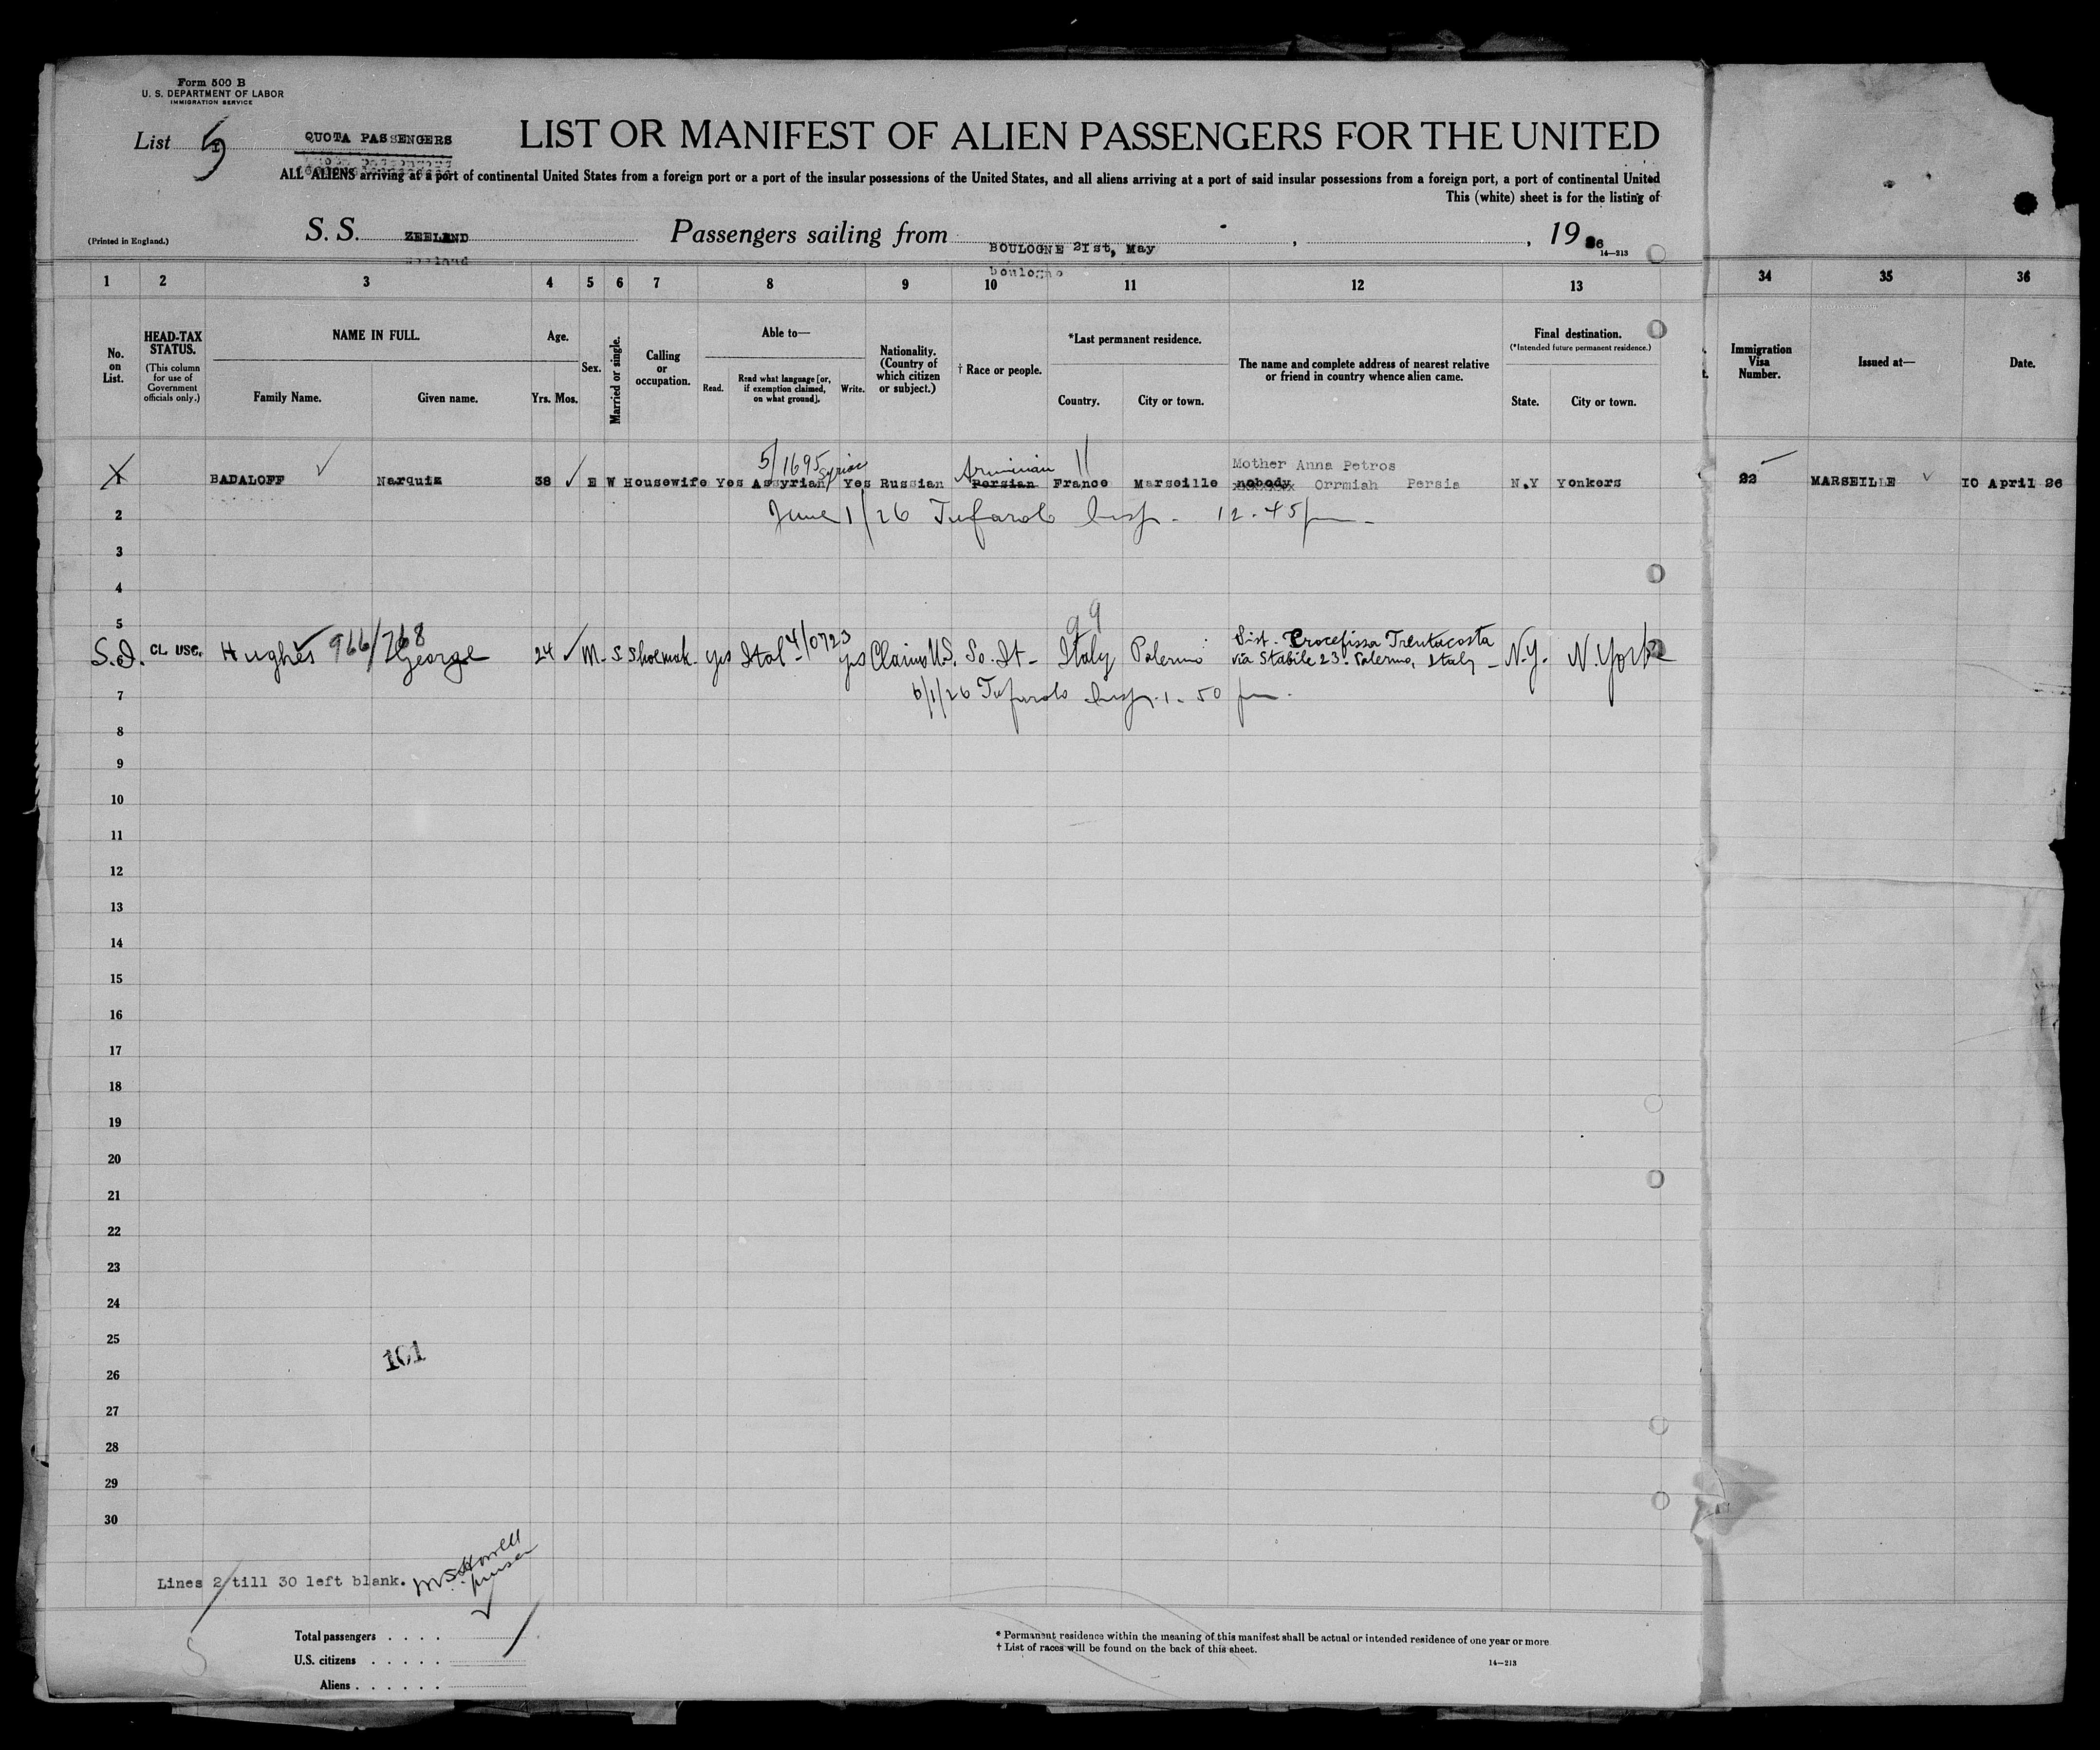 Form 500 B
U. S. DEPARTMENT OF LABOR
IMMIGRATION SERVICE
List 5
QUOTA PASSENGERS
LIST OR MANIFEST OF ALIEN PASSENGERS FOR THE UNITED
ALL ALIENS arriving at a port of continental United States from a foreign port or a port of the insular possessions of the United States, and all aliens arriving at a port of said insular possessions from a foreign port, a port of continental United
This (white) sheet is for the listing of
(Printed in England.)
S. S. ZEELAND Passengers sailing from BOULOGNE 2Ist, May , , 1926
14—213
1 2 3 4 5 6 7 8 9 10 11 12 13 34 35 36
No. on List.
HEAD-TAX STATUS.
(This column for use of Government officials only.)
NAME IN FULL.
Family Name. Given name.
Age.
Yrs. Mos.
Sex.
Married or single.
Calling or occupation.
Able to—
Read. Read what language [or, if exemption claimed, on what ground]. Write.
Nationality. (Country of which citizen or subject.)
† Race or people.
*Last permanent residence.
Country. City or town.
The name and complete address of nearest relative or friend in country whence alien came.
Final destination.
(*Intended future permanent residence.)
State. City or town.
Immigration Visa Number.
Issued at—
Date.
5/1695 Syriac Armenian 11 Mother Anna Petros
1 BADALOFF Narquiz 38 E W Housewife Yes Assyrian Yes Russian Persian France Marseille nobody Orrmiah Persia N.Y Yonkers 22 MARSEILLE IO April 26
2 June 1/26 Tufarolo Insp. 12.45 pm.
3
4
5 99
S.I. CL USC. Hughes 966/768 George 24 M. S Shoemak. yes Ital 4/0723 yes Claims U.S. So. It. Italy Palermo Sist. Crocefissa Trentacosta
via Stabile 23. Palermo, Italy N.Y. N. York
7 6/1/26 Tufarolo Insp. 1.50 pm.
8
9
10
11
12
13
14
15
16
17
18
19
20
21
22
23
24
25
101
26
27
28
29
30
Lines 2 till 30 left blank. Howell
purser
Total passengers . . . .
U.S. citizens . . . . .
Aliens . . . . . .
* Permanent residence within the meaning of this manifest shall be actual or intended residence of one year or more
† List of races will be found on the back of this sheet.
14—213